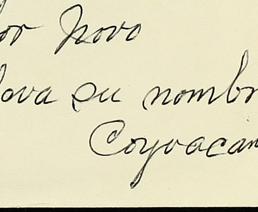 or Novo
lova su nombr
Coyoacan